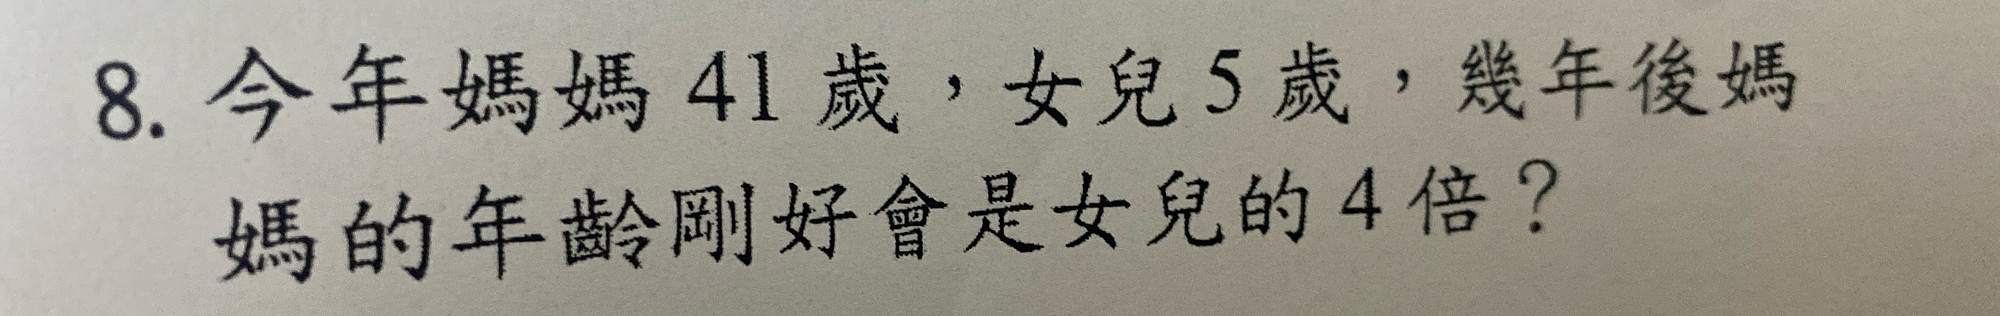 8. 今年媽媽 41 歲，女兒 5 歲，幾年後媽
媽的年齡剛好會是女兒的 4 倍？